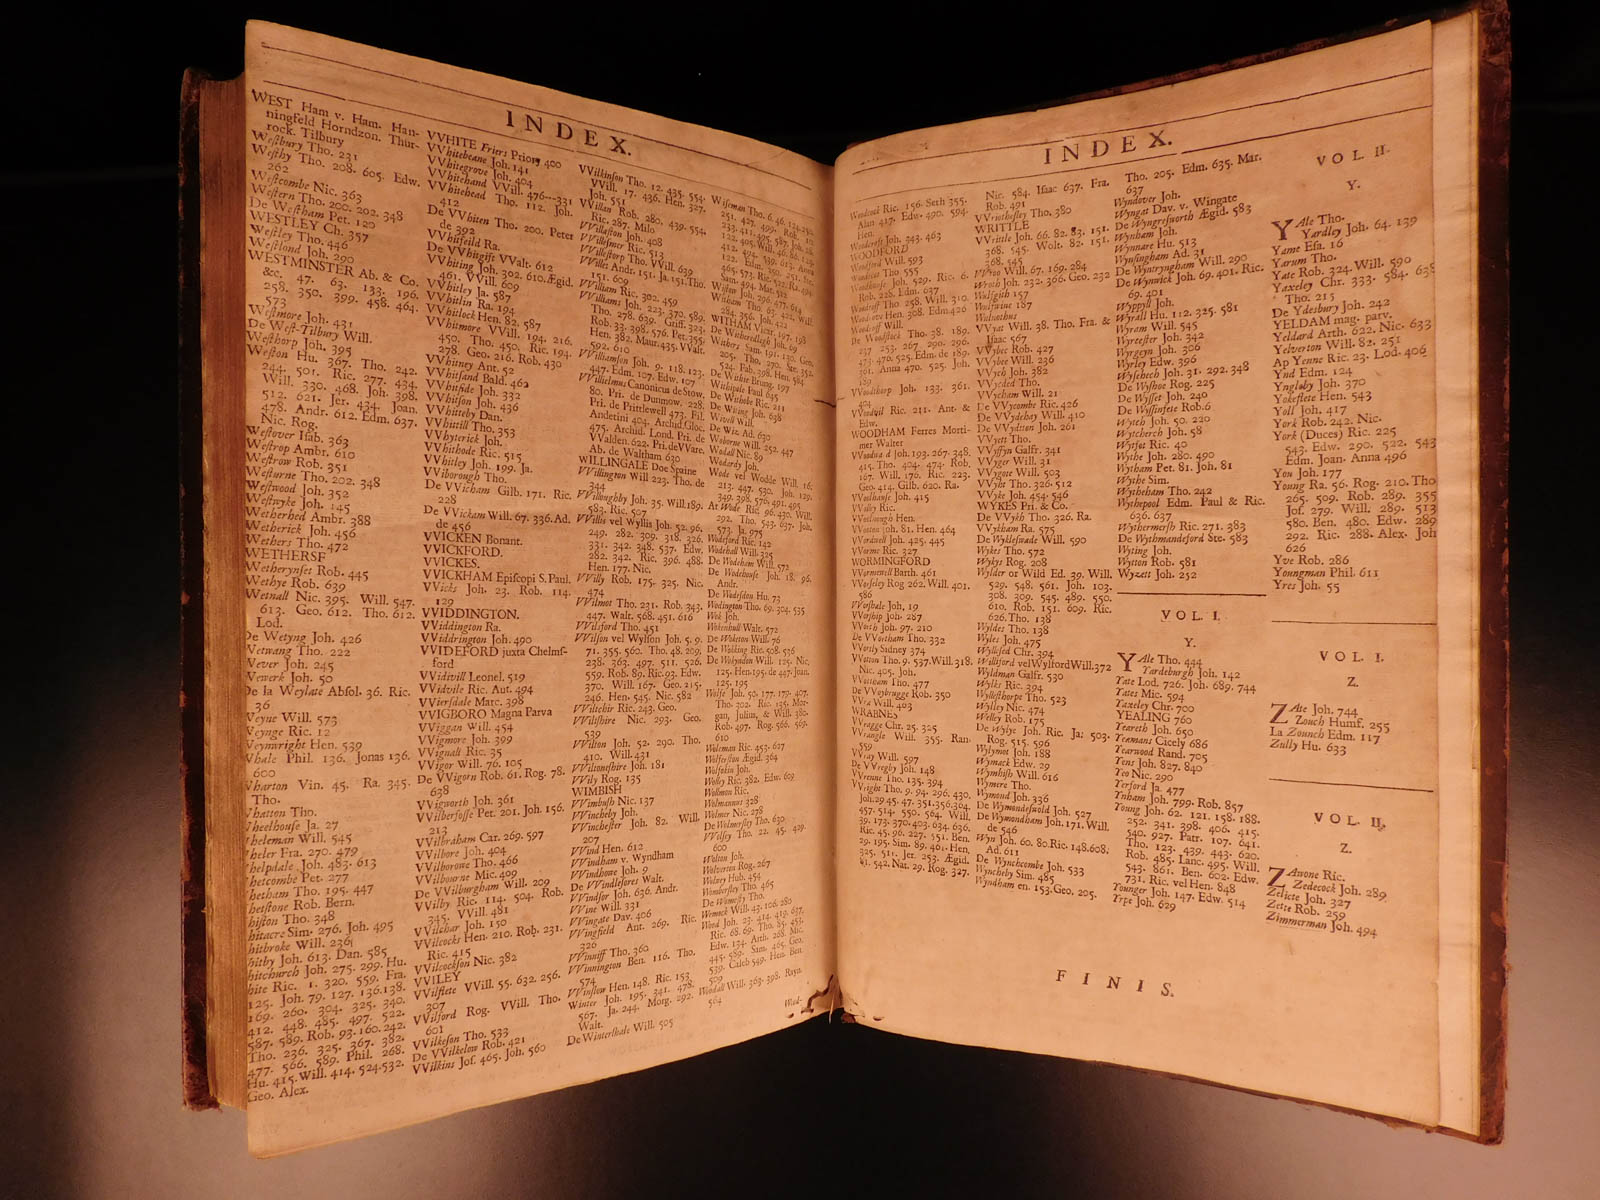 INDEX.
WEST Ham v. Ham. Han-
ningfeld Horndzon. Thur-
rock. Tilbury
Westbury Tho. 231
Westhy Tho. 208. 605. Edw.
262
Westcombe Nic. 363
Western Tho. 200. 202. 348
De Westham Pet. 120
WESTLEY Ch. 357
Westley Tho. 446
Westlond Joh. 290
WESTMINSTER Ab. & Co.
&c. 47. 63. 133. 196.
258. 350. 399. 458. 464.
573
Westmore Joh. 431
De West-Tilbury Will.
Westhorp Joh. 395
Weston Hu. 367. Tho. 242.
244. 501. Ric. 277. 434.
Will. 330. 468. Joh. 398.
512. 621. Jer. 434. Joan.
478. Andr. 612. Edm. 637.
Nic. Rog.
Westover Isab. 363
Westrop Ambr. 610
Westrow Rob. 351
Westurne Tho. 202. 348
Westwood Joh. 352
Westwyke Joh. 145
Wetherhed Ambr. 388
Wetherick Joh. 456
Wethers Tho. 472
WETHERSF
Wetherynset Rob. 445
Wethye Rob. 639
Wetnall Nic. 395. Will. 547.
613. Geo. 612. Tho. 612.
Lod.
De Wetyng Joh. 426
Wetwang Tho. 222
Wever Joh. 245
Wewerk Joh. 50
De la Weylate Absol. 36. Ric.
36
Weyne Will. 573
Weynge Ric. 12
Weynwright Hen. 539
Whale Phil. 136. Jonas 136.
600
Wharton Vin. 45. Ra. 345.
Tho.
Whatton Tho.
Wheelhouse Ja. 27
Wheleman Will. 545
Wheler Fra. 270. 479
Whelpdale Joh. 483. 613
Whetcombe Pet. 277
Whetham Tho. 195. 447
Whetstone Rob. Bern.
Whiston Tho. 348
hitacre Sim. 276. Joh. 495
hitbroke Will. 236
hitby Joh. 613. Dan. 585
hitchurch Joh. 275. 299. Hu.
hite Ric. 1. 320. 559. Fra.
125. Joh. 79. 127. 136. 138.
169. 260. 304. 325. 340.
412. 448. 485. 497. 522.
587. 589. Rob. 93. 160. 242.
Tho. 236. 325. 367. 382.
477. 566. 589. Phil. 268.
Hu. 415. Will. 414. 524. 532.
Geo. Alex.
VVHITE Friers Priory 400
VVhitebeane Joh. 141
VVhitegrove Joh. 404
VVhitehand VVill. 476---331
VVhitehead Tho. 112. Joh.
412
De VVhiten Tho. 200. Peter
de 392
VVhitfeild Ra.
De VVhitgift VValt. 612
VVhiting Joh. 302. 610. Ægid.
461. VVill. 609
VVhitley Ja. 587
VVhitlin Ra. 194
VVhitlock Hen. 82. 587
VVhitmore VVill. 194. 216.
450. Tho. 450. Ric. 194.
278. Geo. 216. Rob. 430
VVhitney Ant. 52
VVhitsand Bald. 462
VVhitside Joh. 332
VVhitson Joh. 436
VVhitteby Dan.
VVhittill Tho. 353
VVhyterick Joh.
VVhithode Ric. 515
VVhitley Joh. 199. Ja.
VViborough Tho.
De VVicham Gilb. 171. Ric.
228
De VVickam Will. 67. 336. Ad.
de 456
VVICKEN Bonant.
VVICKFORD.
VVICKES.
VVICKHAM Episcopi S. Paul.
VVicks Joh. 23. Rob. 114.
129
VVIDDINGTON.
VViddington Ra.
VViddrington Joh. 490
VVIDEFORD juxta Chelmsf-
ford
VVidivill Leonel. 519
VVidvile Ric. Aut. 494
VViersdale Marc. 398
VVIGBORO Magna Parva
VViggan Will. 454
VVigmore Joh. 399
VVignall Ric. 35
VVigor Will. 76. 105
De VVigorn Rob. 61. Rog. 78.
638
VVigworth Joh. 361
VVilberfosse Pet. 201. Joh. 156.
213
VVilbraham Car. 269. 597
VVilbore Joh. 404
VVilborowe Tho. 466
VVilbourne Mic. 409
De VVilburgham Will. 209
VVilby Ric. 114. 504. Rob.
345. VVill. 481
VVilchar Joh. 150
VVilcocks Hen. 210. Rob. 231.
Ric. 415
VVilcockson Nic. 382
VVILEY
VVilflete VVill. 55. 632. 256.
307
VVilford Rog. VVill. Tho.
601
VVilkeson Tho. 533
De VVilkelow Rob. 421
VVilkins Jos. 465. Joh. 560
VVilkinson Tho. 12. 435. 554.
VVill. 17. 436. Hen. 327.
Joh. 551
VVillan Rob. 280. 439. 554.
Ric. 287. Milo
VVillaston Joh. 408
VVillesmer Ric. 513
VVillestorp Tho. VVill. 639
VVilles Andr. 151. Ja. 151. Tho.
151. 609
VVilliam Ric. 302. 459
VVilliams Joh. 223. 370. 589.
Tho. 278. 639. Griff. 323.
Rob. 33. 398. 576. Pet. 355.
Hen. 382. Maur. 435. VValt.
592. 610
VVilliamson Joh. 9. 118. 123.
447. Edm. 107. Edw. 107
VVillielmus Canonicus de Stow.
80. Pri. de Dunmow. 228.
Pri. de Prittlewell 473. Fil.
Andetini 404. Archid. Gloc.
475. Archid. Lond. Pri. de
VValden. 622. Pri. de VVare.
Ab. de Waltham 630
WILLINGALE Doe Spaine
VVillington Will 223. Tho. de
344
VVilloughby Joh. 35. Will. 189.
583. Ric. 507
VVillis vel Wyllis Joh. 52. 96.
249. 282. 309. 318. 326.
331. 342. 348. 537. Edw.
282. 342. Ric. 396. 488.
Hen. 177. Nic.
VVilly Rob. 175. 325. Nic.
474
VVilmot Tho. 231. Rob. 343.
447. Walt. 568. 451. 616
VVilsford Tho. 451
VVilson vel Wylson Joh. 5. 9.
71. 355. 560. Tho. 48. 209.
238. 363. 497. 511. 526.
559. Rob. 89. Ric. 93. Edw.
370. Will. 167. Geo. 215.
246. Hen. 545. Nic. 582
VViltchir Ric. 243. Geo.
539
VViltshire Nic. 293. Geo.
VVilton Joh. 52. 290. Tho.
410. Will. 431
VViltonshire Joh. 181
VVily Rog. 135
WIMBISH
VVimbush Nic. 137
VVincheby Joh.
VVinchester Joh. 82. Will
207
VVind Hen. 612
VVindham v. Wyndham
VVindhowe Joh. 9
De VVindlesores Walt.
VVindsor Joh. 636. Andr.
VVine Will. 331
VVingate Dav. 406
VVingfield Ant. 269. Ric.
326
VVinniff Tho. 360
VVinnington Ben. 116. Tho.
574
VVinslow Hen. 148. Ric. 153
Winter Joh. 195. 341. 478.
567. Ja. 244. Morg. 292.
Walt.
De Wintershale Will. 505
Wiseman Tho. 6. 46.
WITHAM Vicar.
De Witheredlegh Joh. 69
De Withie Brung. 197
Withipole Paul 645
De Withobe Ric. 211
De Witing Joh. 638
Wivell Will.
De Wiz Ad. 630
Woborne Will. 252. 447
Wodall Nic. 89
Wodardy Joh.
Wode vel Wodde Will. 16.
213. 447. 530. Joh. 129.
349. 398. 576. 491. 495
At Wode Ric. 96. 430. Will.
292. Tho. 543. 637. Joh.
573. Ja. 975
Wodeford Ric. 142
Wodehall Will. 325
De Wodeham Will. 572
De Wodehouse Joh. 18. 96.
Andr.
De Wodesdon Hu. 73
Wodington Tho. 69. 304. 535
Wok Joh.
Wokenhull Walt. 572
De Woleston Will. 76
De Wokking Ric. 508. 536
De Wokyndon Will. 125. Nic.
125. Hen. 195. de 447. Joan.
125. 195
Wolfe Joh. 50. 177. 179. 407.
Tho. 202. Ric. 135. Mor-
gan, Julian, & Will. 380.
Rob. 497. Rog. 566. 569.
610
Woleman Ric. 453. 627
Wolferston Ægid. 364
Wolfskin Joh.
Wolley Ric. 382. Edw. 609
Wollmon Ric.
Wolmannus 328
Wolmer Nic. 278
De Wolmersley Tho. 630
Wolsey Tho. 22. 45. 429.
600
Wolton Joh.
Wolverton Rog. 267
Wolvey Hub. 454
Wombersley Tho. 465
De Womesty Tho.
Womock Will. 43. 106. 280
Wood Joh. 23. 414. 419. 637.
Ric. 68. 69. Tho. 85. 453.
Edw. 134. Arth. 268. Mic.
445. 589. Sam. 465. Geo.
539. Caleb 549. Hen. Ben.
509
Woodall Will. 363. 398. Rayn.
564
Wood-
INDEX.
Woodcock Ric. 156. Seth 355.
Alan 417. Edw. 490. 594.
Hen.
Woodcroft Joh. 343. 463
WOODFORD
Woodford Will. 593
Woodhall Tho. 555
Woodhouse Joh. 529. Ric. 6.
Rob. 228. Edm. 637
Woodroff Tho. 258. Will. 310.
Woodrove Hen. 308. Edm. 426
Woodroff Will.
De Woodstock Tho. 38. 189.
237. 253. 267. 290. 296.
473. 470. 525. Edm. de 189.
391. Anna 470. 525. Joh.
189
Woodthorp Joh. 133. 361.
404
Woodvil Ric. 211. Ant. &
Edw.
WOODHAM Ferres Morti-
mer Walter
Woodward Joh. 193. 267. 348.
415. Tho. 404. 474. Rob.
167. Will. 176. Ric. 223.
Geo. 414. Gilb. 620. Ra.
Woolhouse Joh. 415
Woolley Ric.
Woolnough Hen.
Wootton Joh. 81. Hen. 464
Wordwell Joh. 425. 445
Worme Ric. 327
WORMINGFORD
Wormenell Barth. 461
Worseley Rog 262. Will. 401.
586
Worshale Joh. 19
Worship Joh. 287
Worth Joh. 97. 210
De VVortham Tho. 332
Wortly Sidney 374
Wotton Tho. 9. 537. Will. 318.
Nic. 405. Joh.
Wottham Tho. 477
De VVoybrugge Rob. 350
Will. 403
WRABNES
VVragge Chr. 25. 325
VVrangle Will. 355. Ran.
559
VVray Will. 597
De VVregby Joh. 148
VVrenne Tho. 135. 394
VVright Tho. 9. 94. 296. 430.
Joh. 29. 45. 47. 351. 356. 394.
457. 514. 550. 564. Will.
39. 173. 370. 403. 634. 636.
Ric. 45. 96. 227. 551. Ben.
29. 195. Sim. 89. 461. Hen.
325. 511. Jer. 253. Ægid.
61. 542. Nat. 29. Rog. 327.
Nic. 584. Isaac 637. Fra.
Rob. 491
VVriothesley Tho. 380
WRITTLE
VVrittle Joh. 66. 82. 83. 151.
368. 545. Walt. 82. 151.
368. 545
VVroo Will. 67. 169. 284
Wroth Joh. 232. 366. Geo. 232
Wulfguth 157
Wulfwine 187
Wulnothus
VVyat Will. 38. Tho. Fra. &
Isaac 567
VVybee Rob. 427
VVybee Will. 236
VVych Joh. 382
VVyched Tho.
VVycham Will. 21
De VVycombe Ric. 426
De VVydehay Will. 410
De VVydtton Joh. 261
VVyett Tho.
VVyffyn Galfr. 341
VVyger Will. 31
VVygore Will. 503
VVyht Tho. 326. 512
VVyke Joh. 454. 546
WYKES Pri. & Co.
De VVykh Tho. 326. Ra.
VVykham Ra. 575
De VVyklesuade Will. 590
Wykes Tho. 572
Wykys Rog. 208
Wylder or Wild Ed. 39. Will.
529. 548. 561. Joh. 103.
308. 309. 545. 489. 550.
610. Rob. 151. 609. Ric.
626. Tho. 138
Wyldes Tho. 138
Wyles Joh. 475
Wyllifed Chr. 394
Williford vel Wylford Will. 372
Wyldman Galfr. 530
Wylks Ric. 394
Wyllesthorpe Tho. 523
Wylley Nic. 474
Welley Rob. 175
De Wylye Joh. Ric. Ja: 503.
Rog. 515. 596
Wylymot Joh. 188
Wymack Edw. 29
Wymhish Will. 616
Wymere Tho.
Wymond Joh. 336
De Wymondeswold Joh. 527
De Wymondham Joh. 171. Will.
de 546
Wyn Joh. 60. 80. Ric. 148. 608.
Ad. 611
De Wynchcombe Joh. 533
Wyncheby Sim. 485
Wyndham en. 153. Geo. 205.
Tho. 205. Edm. 635. Mar.
637
Wyndover Joh.
Wyngat Dav. v. Wingate
De Wyngresworth Ægid. 583
Wynham Joh.
Wynnare Hu. 513
Wynsingham Ad. 31
De Wyntryngham Will. 290
De Wynwick Joh. 69. 401. Ric.
69. 401
Wyppyll Joh.
Wyrall Hu. 112. 325. 581
Wyram Will. 545
Wyreester Joh. 342
Wyrgeyn Joh. 306
Wyrley Edw. 396
Wysehech Joh. 31. 292. 348
De Wyshoe Rog. 225
De Wysset Joh. 240
De Wyssinsete Rob. 6
Wytch Joh. 50. 220
Wytcherch Joh. 58
Wytfot Ric. 40
Wythe Joh. 280. 490
Wytham Pet. 81. Joh. 81
Wythe Sim.
Wytheham Tho. 242
Wythepool Edm. Paul & Ric.
636. 637
Wythermersh Ric. 271. 383
De Wythmandeford Ste. 583
Wyting Joh.
Wytton Rob. 581
Wyzett Joh. 252
VOL. I.
Y.
YAle Tho. 444
Yardeburgh Joh. 142
Yate Lod. 726. Joh. 689. 744
Yates Mic. 594
Yaxeley Chr. 700
YEALING 760
Yeareth Joh. 650
Yeamans Cicely 686
Yearwood Rand. 705
Yens Joh. 827. 840
Yeo Nic. 290
Yerford Ja. 477
Ynham Joh. 799. Rob. 857
Young Joh. 62. 121. 158. 188.
252. 341. 398. 406. 415.
540. 927. Patr. 107. 641.
Tho. 123. 439. 443. 620.
Rob. 485. Lanc. 495. Will.
543. 861. Ben. 602. Edw.
731. Ric. vel Hen. 848
Younger Joh. 147. Edw. 514
Yrpe Joh. 629
VOL. II.
Y.
YAle Tho.
Yardley Joh. 64. 139
Yame Esa. 16
Yarum Tho.
Yate Rob. 324. Will. 590
Yaxeley Chr. 333. 584. 638
Tho. 215
De Ydesbury Joh. 242
YELDAM mag. parv.
Yeldard Arth. 622. Nic. 633
Yelverton Will. 82. 251
Ap Yenne Ric. 23. Lod. 406
Ynd Edm. 124
Yngloby Joh. 370
Yokeflete Hen. 543
Yoll Joh. 417
York Rob. 242. Nic.
York (Duces) Ric. 225
543. Edw. 290. 522. 543
Edm. Joan. Anna 496
You Joh. 177
Young Ra. 56. Rog. 210. Tho
265. 509. Rob. 289. 355
Jos. 279. Will. 289. 513
580. Ben. 480. Edw. 289
292. Ric. 288. Alex. Joh
626
Yve Rob. 286
Youngman Phil. 611
Yres Joh. 55
VOL. I.
Z.
ZAte Joh. 744
Zouch Humf. 255
La Zounch Edm. 117
Zully Hu. 633
VOL. II,
Z.
ZAwone Ric.
Zedecock Joh. 289
Zelicte Joh. 327
Zette Rob. 259
Zimmerman Joh. 494
FINIS.